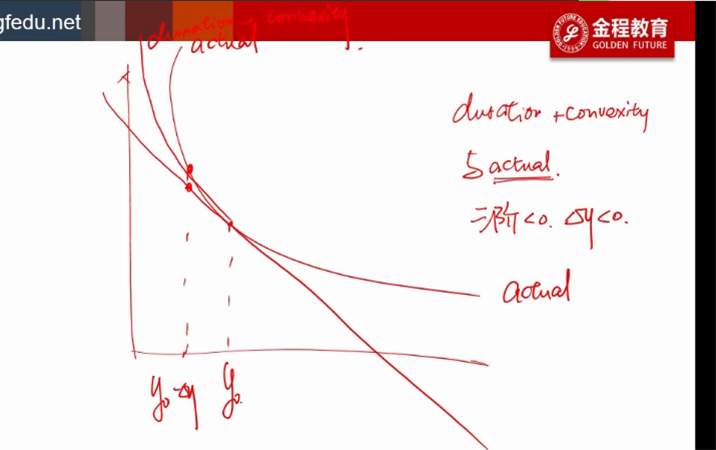 gfedu.net
金程教育
GOLDEN FUTURE
duration + convexity
actual
duration + convexity
与 actual.
三阶<0. Δy<0.
actual
y₀-Δy y₀.